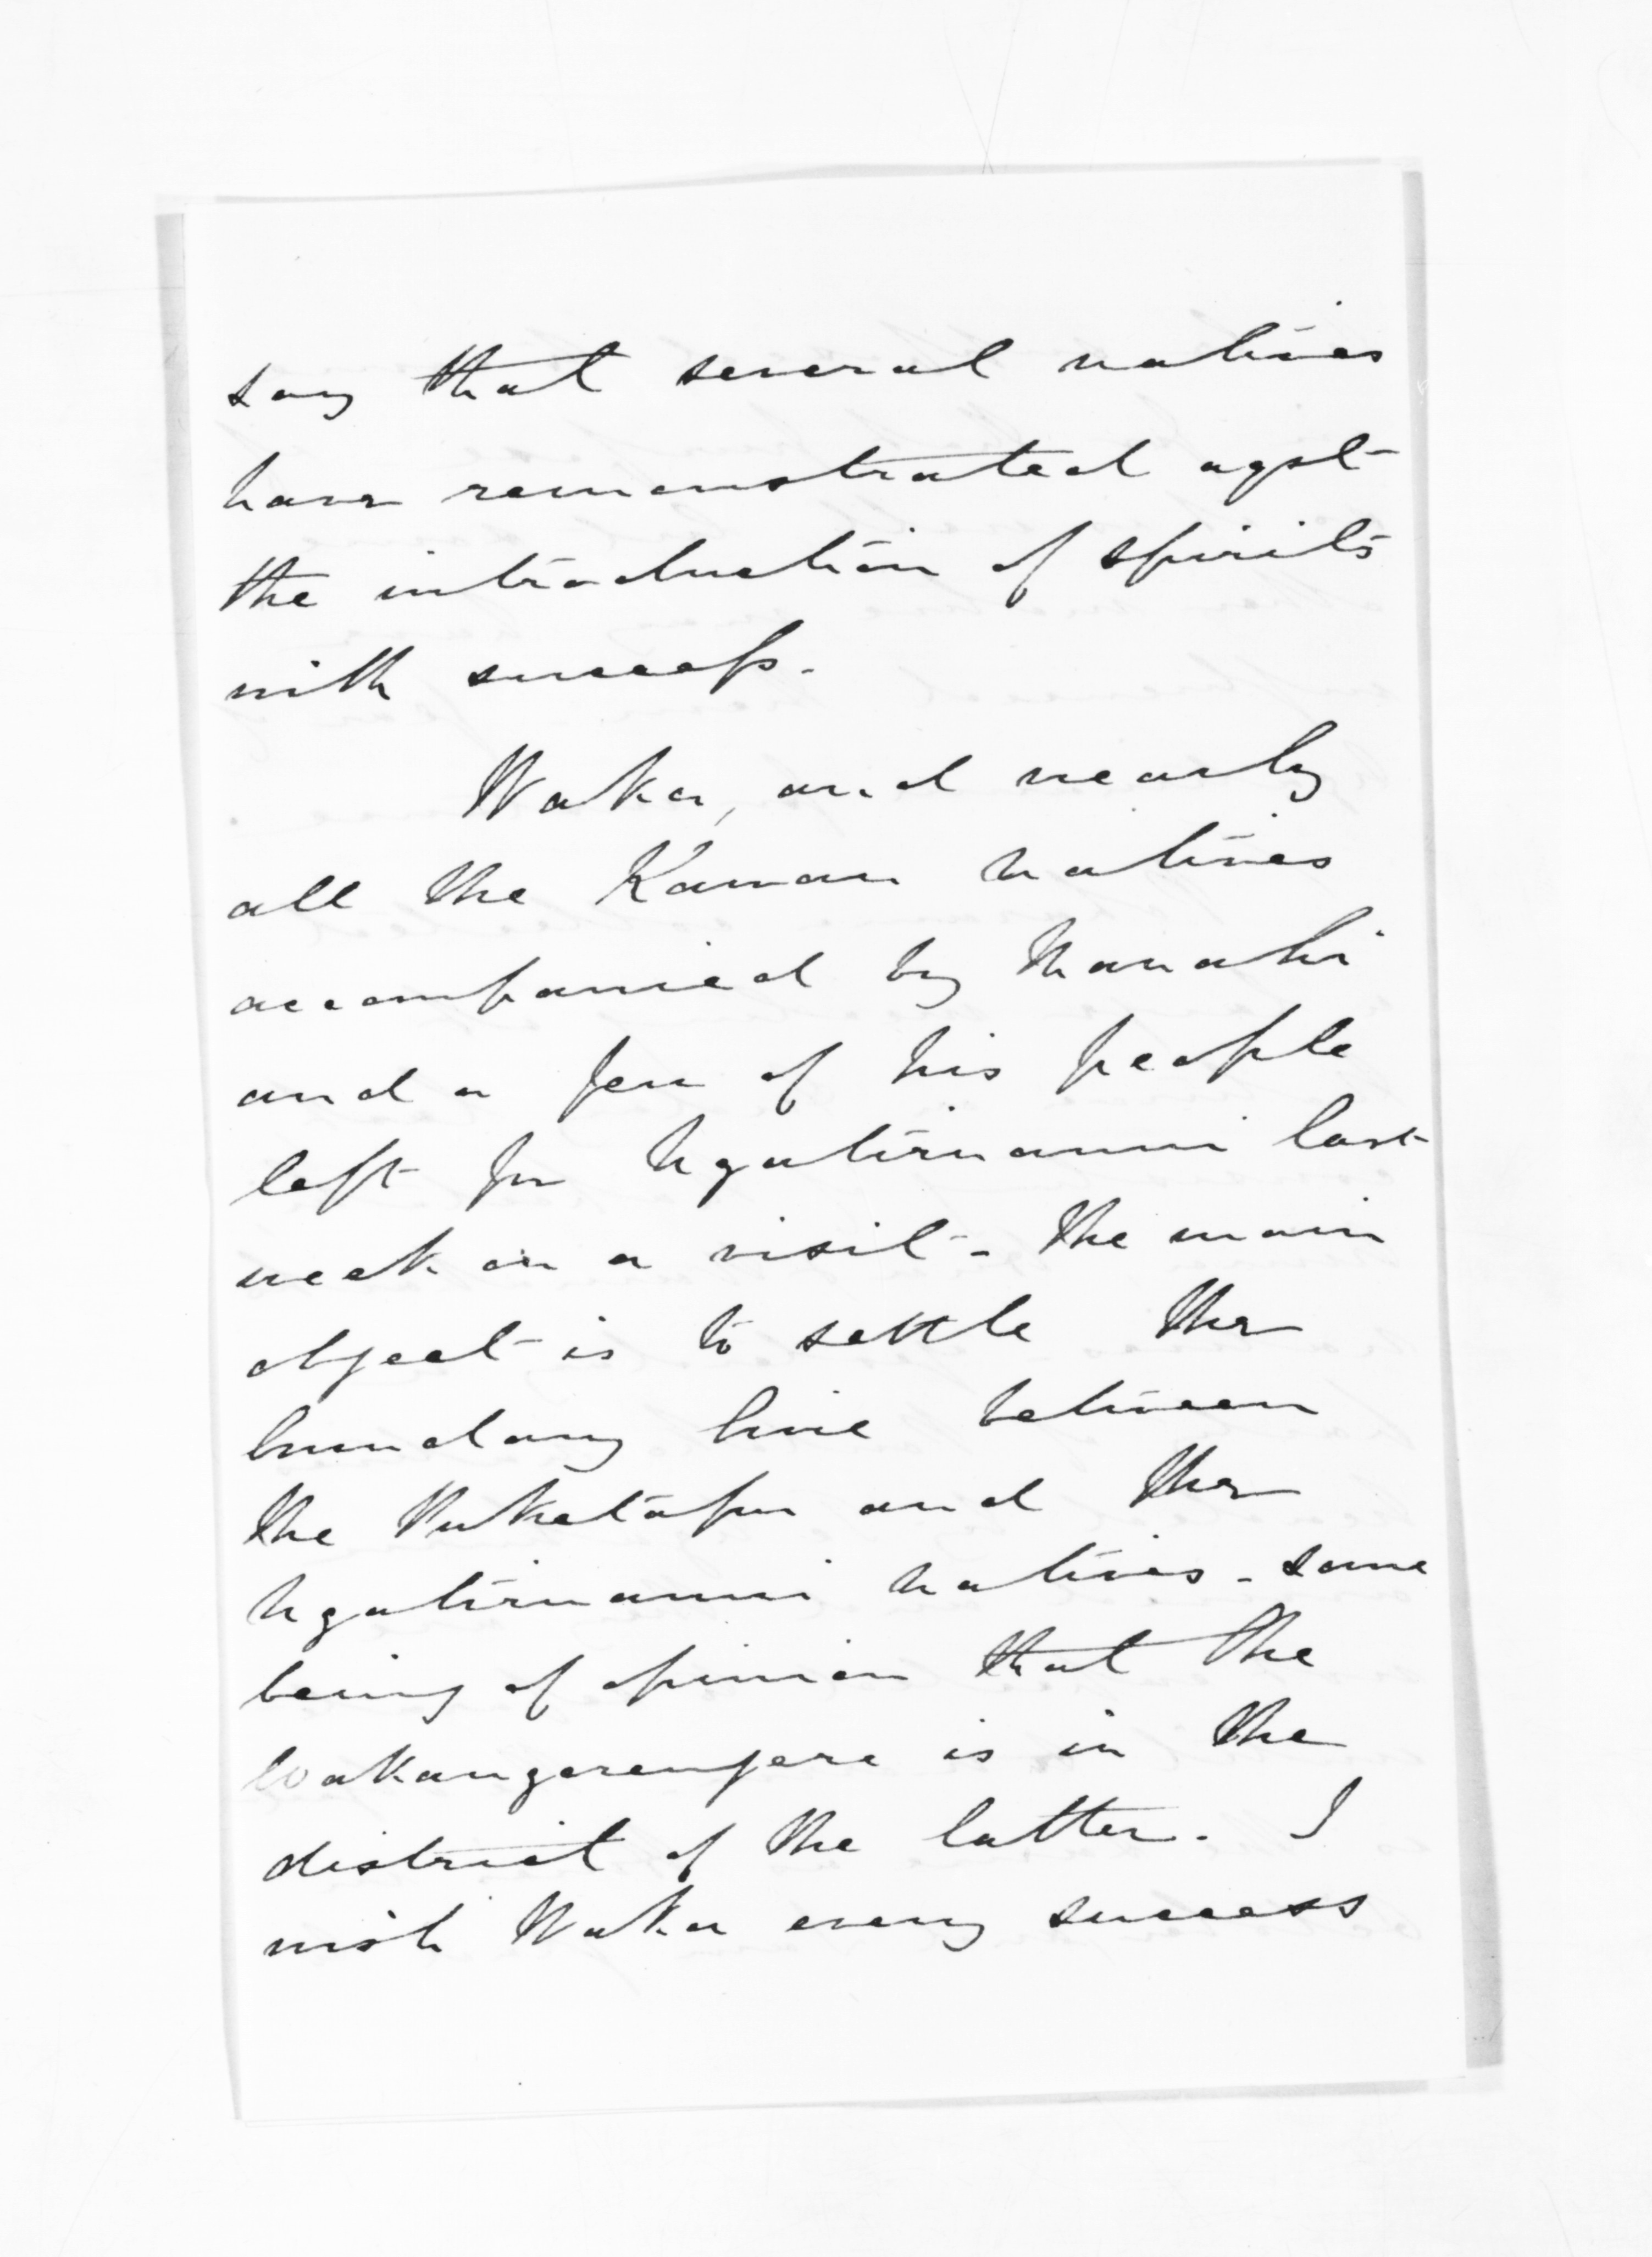 say that several natives
have remonstrated agst
the introduction of spirits
with success.
Waka, and nearly
all the Kawau natives
accompanied by Manahi
and a few of his people
left for Ngatiruanui last
week on a visit - the main
object is to settle the
boundary line between
the Puketapu and the
Ngatiruanui natives - some
being of opinion that the
is in the
district of the latter. I
wish Waka every success